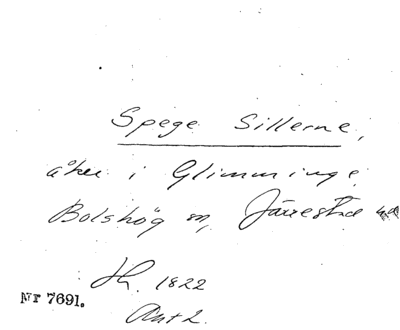 Spege Sillerne,
åker i Glimminge,
Bolshög sn, Järrestad hd
1822
Nr 7691.
Ant 2.